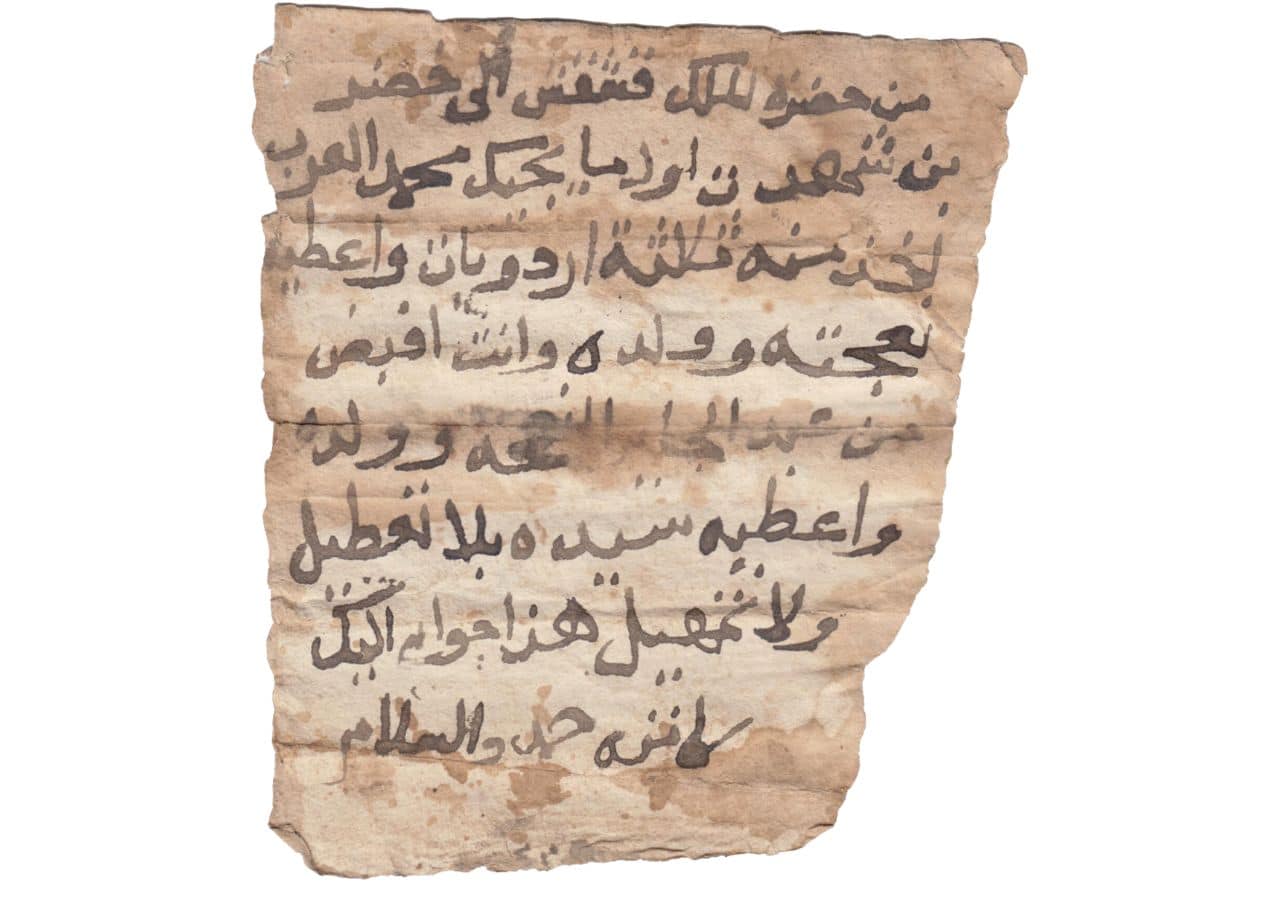 من حضرة الملك قشقش الى خضر
بن شهد ن اول ما يجيك محمد العرب
تخذ منه ثلثة اردويات واعطيه
نعجته وولده وانت اقبض
من عبد الجابر النعجه وولده
واعطيه سيده بلا تعطيل
ولا تمهيل هذا جواب اليك
كاتبه حمد والسلام